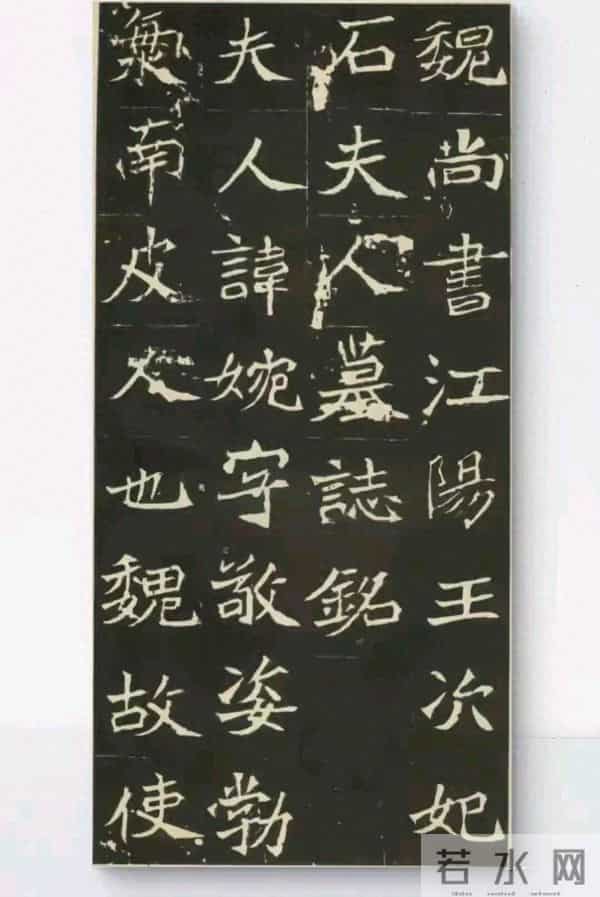 魏尚書江陽王次妃
石夫人墓誌銘
夫人諱婉字敬姿勃
海南皮人也魏故使
若水网